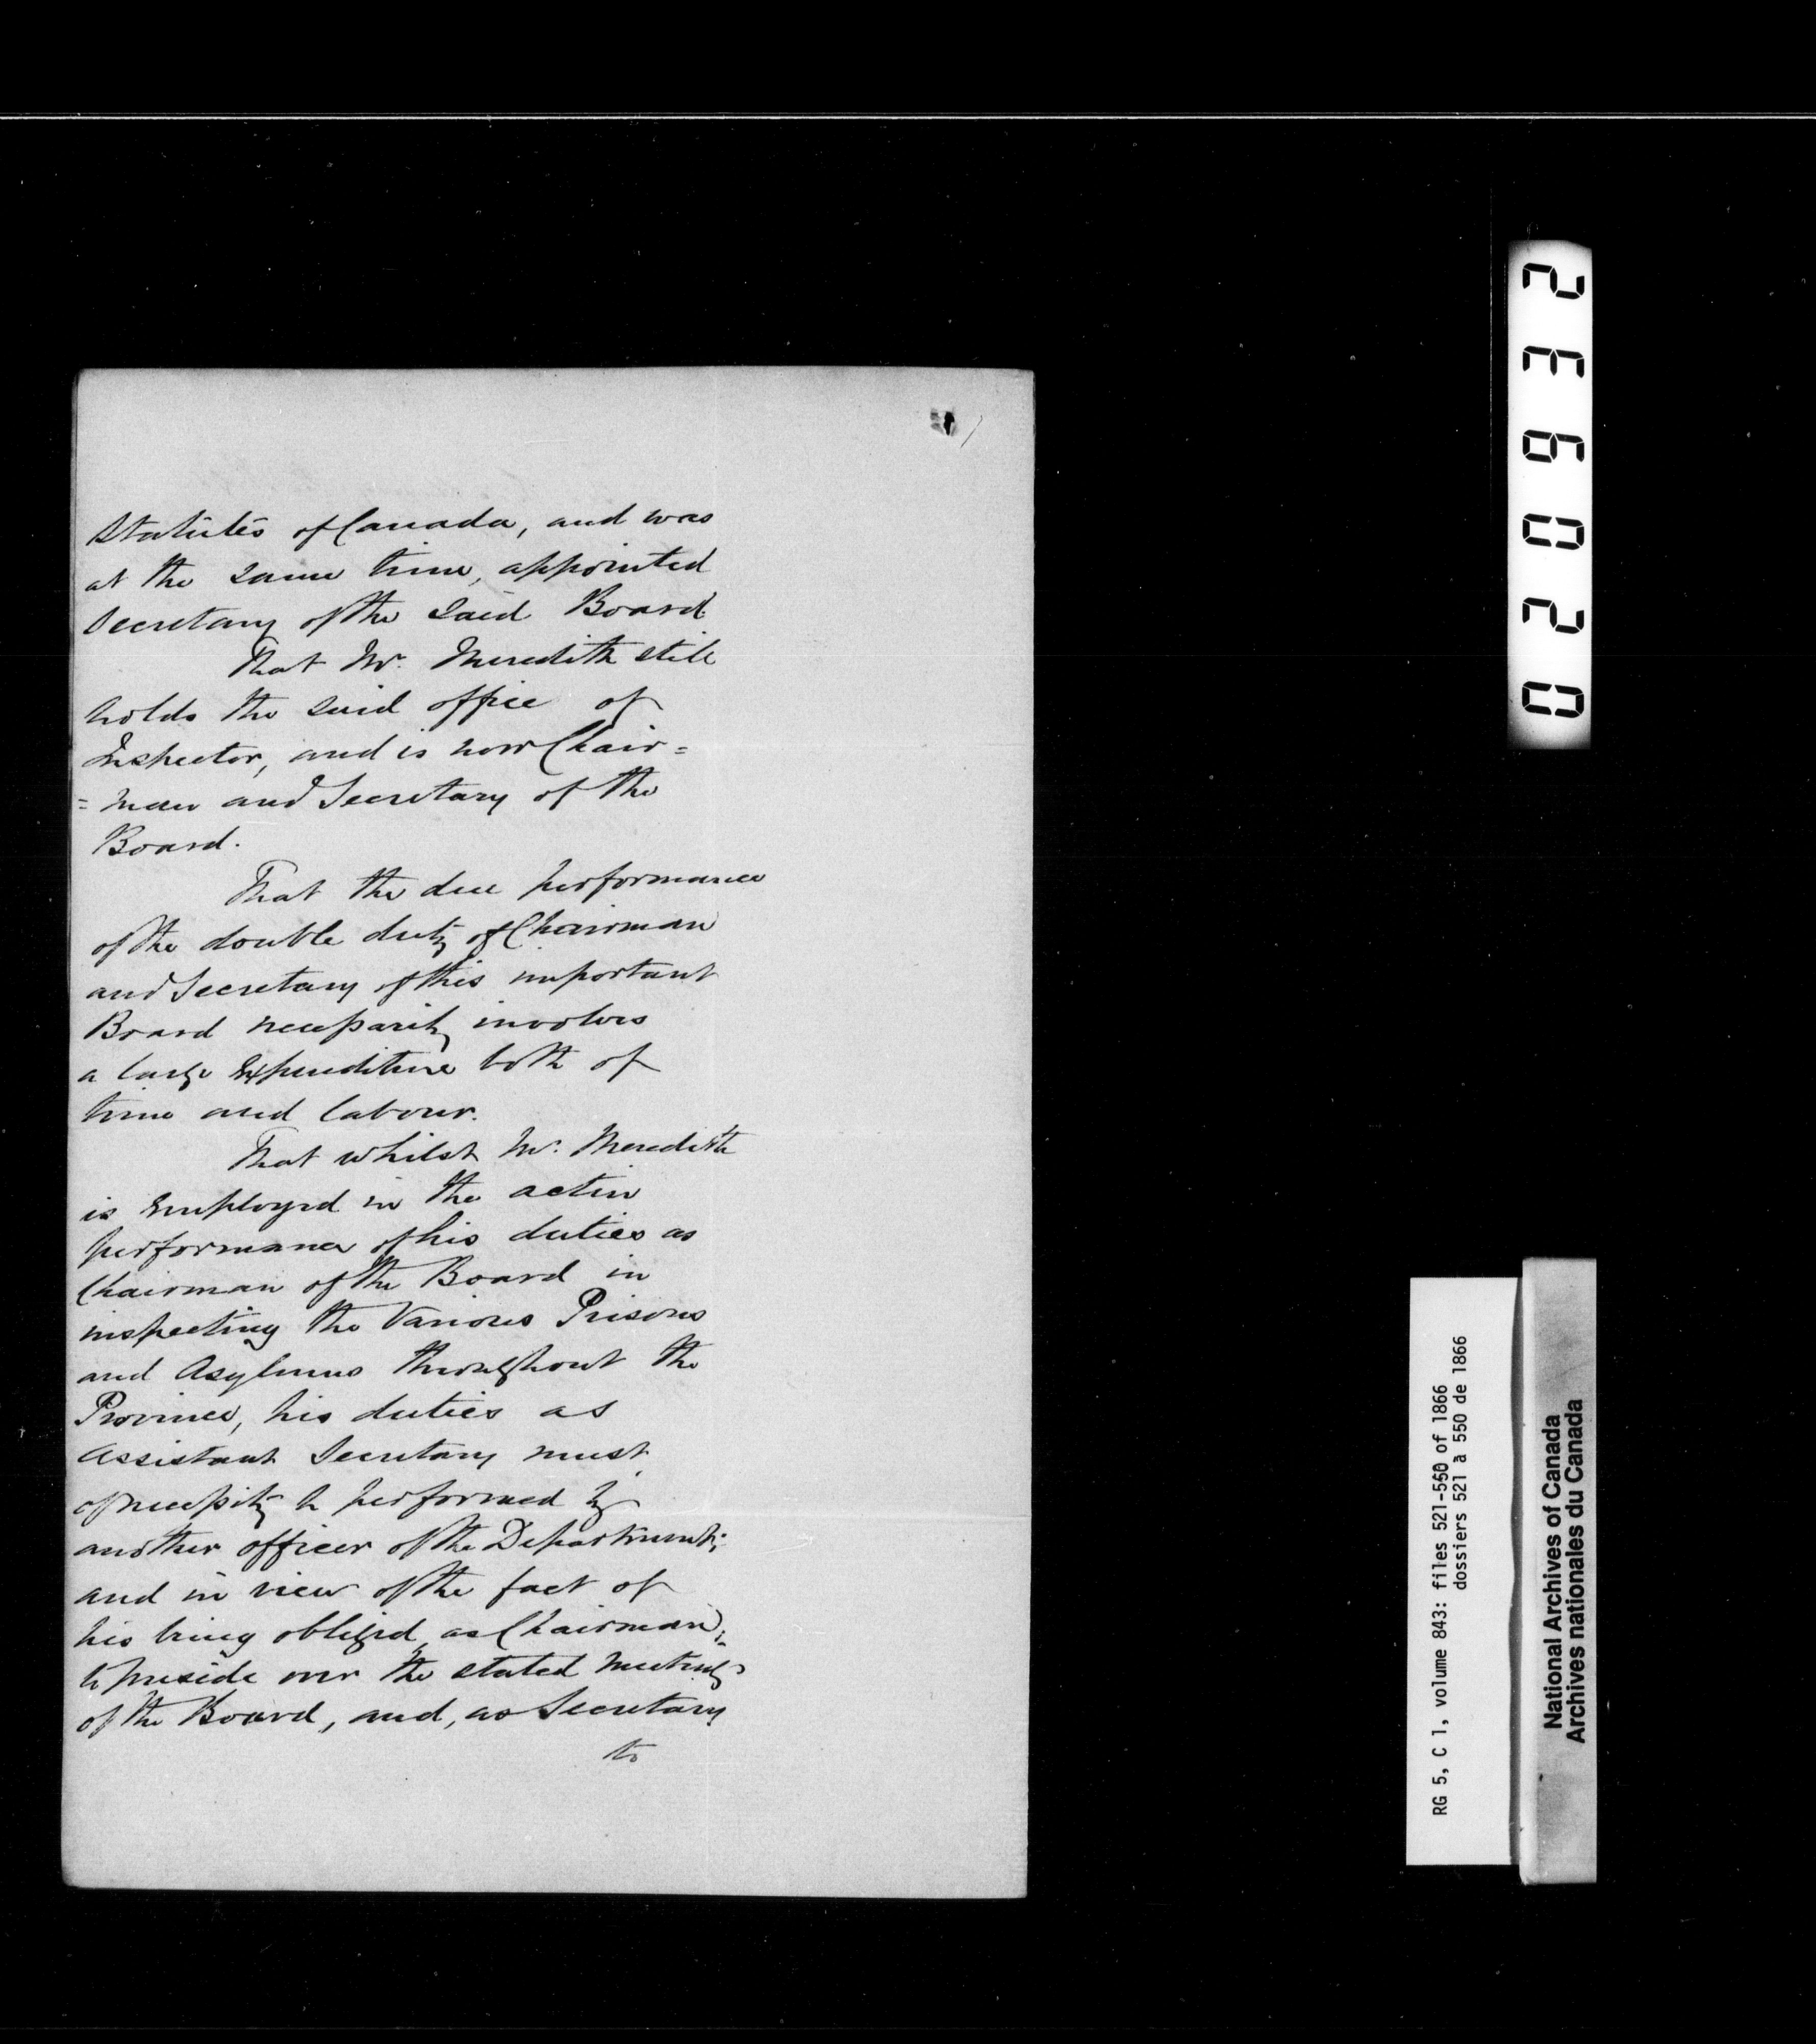 Statutes of Canada, and was
at the same time, appointed
Secretary of the said Board.
That Mr. Meredith still
holds the said office of
Inspector, and is now Chair=
=man and Secretary of the
Board.
That the due performance
of the double duty of Chairman
and Secretary of this important
Board necessarily involves
a large Expenditure both of
time and labour.
That whilst Mr. Meredith
is Employed in the active
performance of his duties as
Chairman of the Board in
inspecting the Various Prisons
and Asylums throughout the
Province, his duties as
Assistant Secretary must
of necessity be performed by
another officer of the Department;
and in view of the fact of
his being obliged, as Chairman,
to preside over the stated meetings
of the Board, and, as Secretary
to
023602
RG 5, C 1, volume 843: files 521-550 of 1866
dossiers 521 à 550 de 1866
National Archives of Canada
Archives nationales du Canada